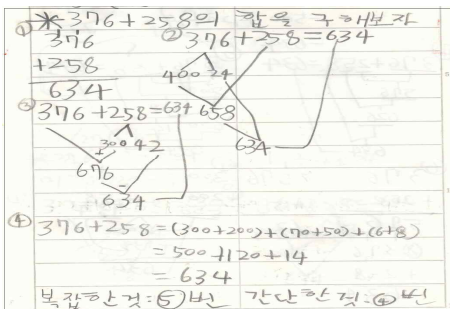 * 376+258의 합을 구해보자
① 376
+258
634
② 376+258=634
400 24
658
634
③ 376+258=634
300 42
+
676
-
634
④ 376+258=(300+200)+(70+50)+(6+8)
=500+120+14
=634
복잡한것:⑤번 간단한것:④번